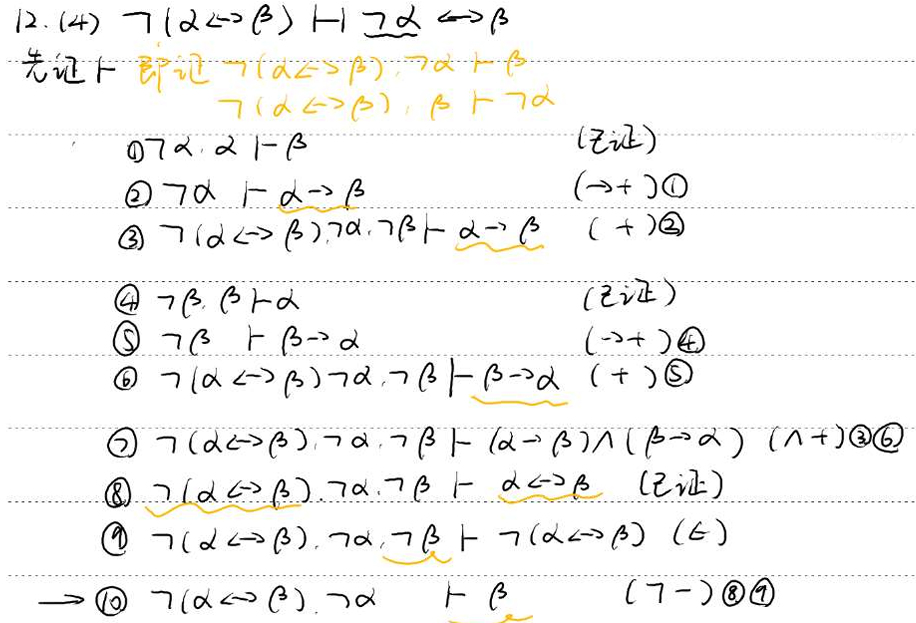 12.(4) ¬(α↔β) ⊢⊣ ¬α ↔ β
先证⊢ 即证 ¬(α↔β), ¬α ⊢ β
¬(α↔β), β ⊢ ¬α
① ¬α, α ⊢ β (已证)
② ¬α ⊢ α→β (→+)①
③ ¬(α↔β), ¬α, ¬β ⊢ α→β (+)②
④ ¬β, β ⊢ α (已证)
⑤ ¬β ⊢ β→α (→+)④
⑥ ¬(α↔β) ¬α, ¬β ⊢ β→α (+)⑤
⑦ ¬(α↔β), ¬α, ¬β ⊢ (α→β)∧(β→α) (∧+)③⑥
⑧ ¬(α↔β), ¬α, ¬β ⊢ α↔β (已证)
⑨ ¬(α↔β), ¬α, ¬β ⊢ ¬(α↔β) (∈)
→ ⑩ ¬(α↔β), ¬α ⊢ β (¬-)⑧⑨